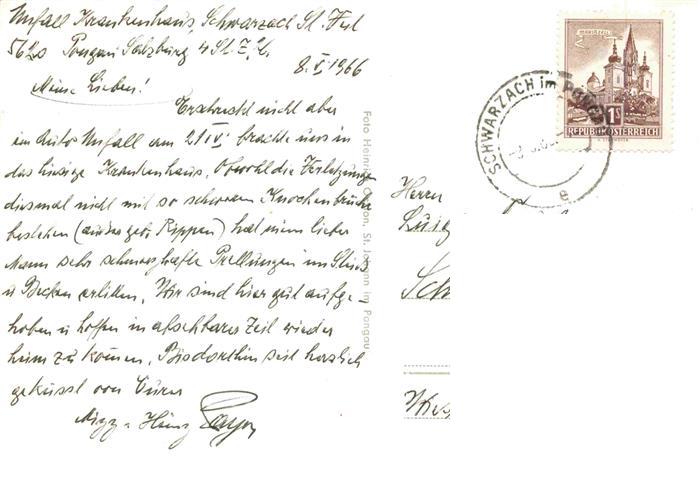 Unfall Krankenhaus, Schwarzach St. Veit
5620 Pongau Salzburg 4 St. Z. 4.
8. V. 1966
Meine Lieben!
Erschreckt nicht aber
ein Auto Unfall am 21 IV brachte uns in
das hiesige Krankenhaus. Obwohl die Verletzungen
diesmal nicht mit so schweren Knochenbrüche
bestehen (außer gebr. Rippen) hat mein lieber
Mann sehr schmerzhafte Prellungen im
u Becken erlitten. Wir sind hier gut aufge-
hoben u hoffen in absehbarer Zeit wieder
heim zu können. Bis dorthin seit herzlich
geküsst von Euren
Mizz u Heinz
Foto Heinrich St. Johann im Pongau
MARIAZELL
1S
REPUBLIK ÖSTERREICH
SCHWARZACH im PONGAU
e
Herrn